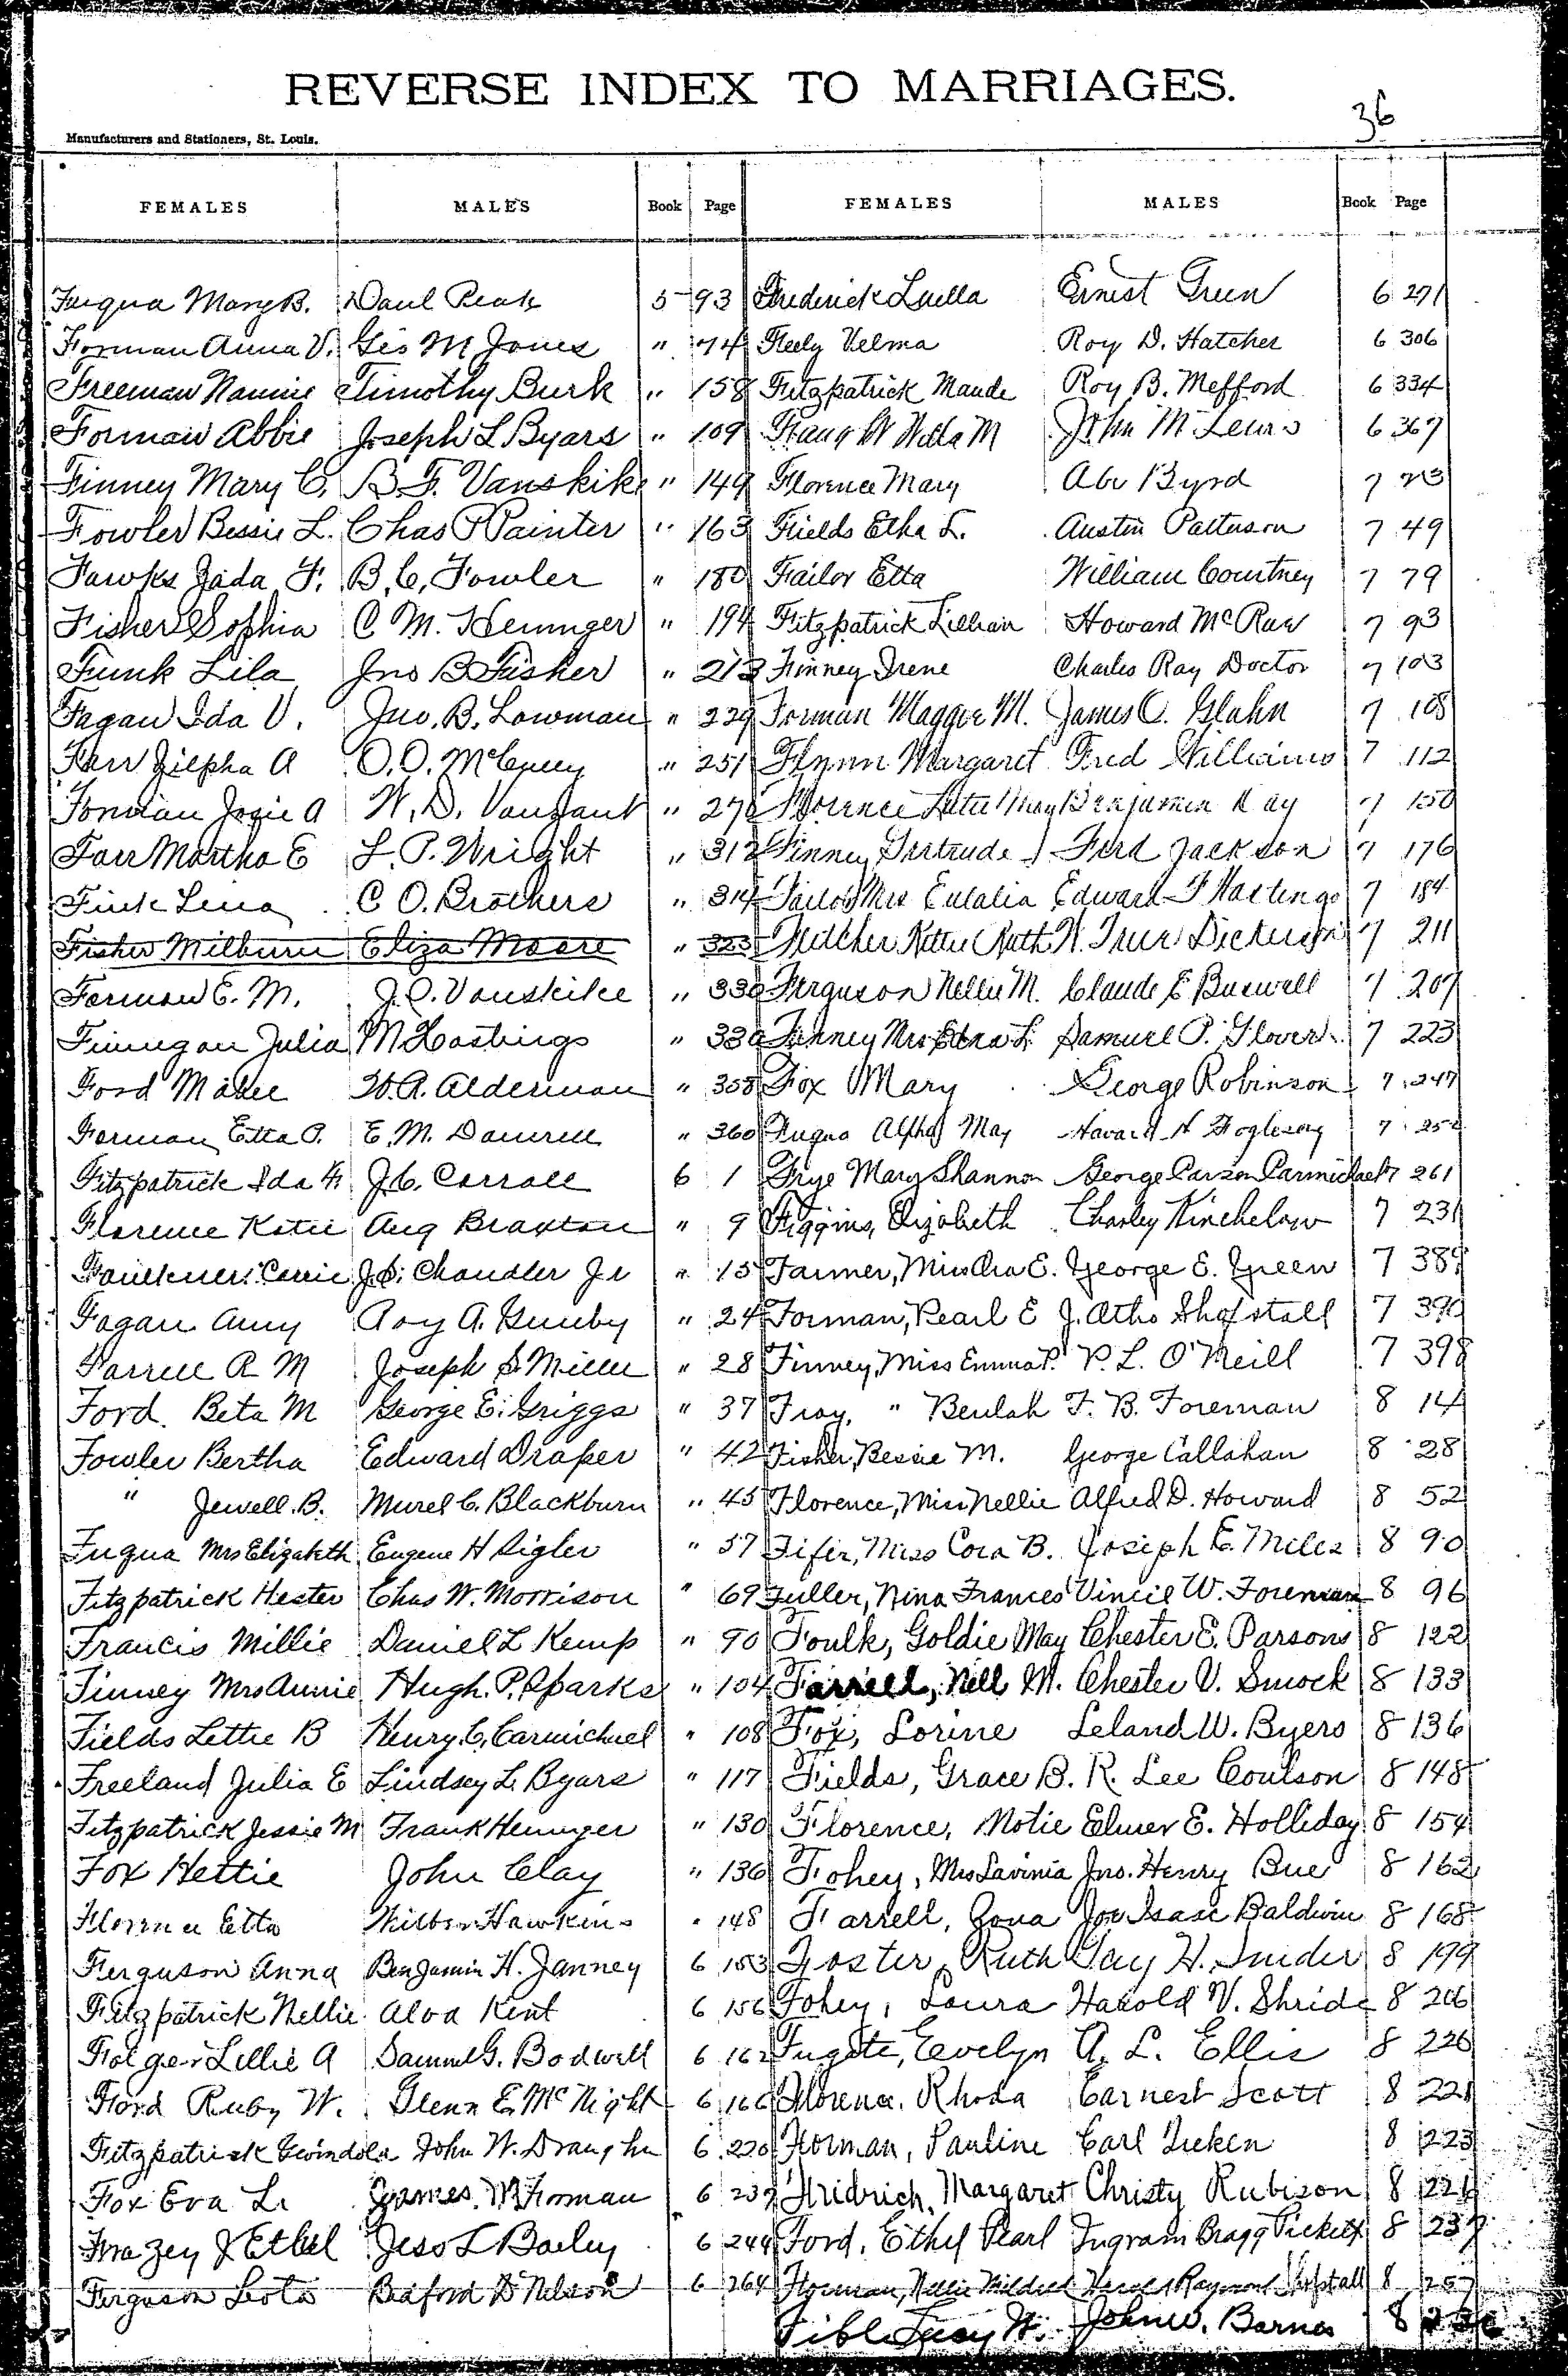 REVERSE INDEX TO MARRIAGES.
36
Manufacturers and Stationers, St. Louis.
FEMALES MALES Book Page FEMALES MALES Book Page
Fuqua Mary B. Paul Peak 5 93
Forman Anna V. Geo M Jones " 74
Freeman Nannie Timothy Burk " 158
Forman Abbie Joseph L Byars " 109
Finney Mary C. B. F. Vanskike " 149
Fowler Bessie L. Chas P Painter " 163
Fawks Jada F. B. C. Fowler " 180
Fisher Sophia C M. Heninger " 194
Funk Lila Jno B Fisher " 213
Fagan Ida V. Jno. B. Lowman " 229
Farr Zilpha A O. O. " 251
Josie A W. D. Vanzant " 270
Farr Martha E L. P. Wright " 312
Fink Lena C O. Brothers " 314
Fisher Milburn Eliza Moore " 323
Forman E. M. J. O. Vanskike " 330
Finnegan Julia M Hastings " 330
Ford Mabel W. A. Alderman " 358
Forman Etta P. E. M. Damrell " 360
Fitzpatrick Ida J. C. Carroll 6 1
Florence Katie Aug Braxton " 9
Faulkner Carrie J. C. Chandler Jr " 15
Fagan Amy Roy A. Gumby " 24
Farrell R M Joseph S Miller " 28
Ford Beta M George E. Griggs " 37
Fowler Bertha Edward Draper " 42
" Jewell. B. Murel C. Blackburn " 45
Fuqua Mrs Elizabeth Eugene H Sigler " 57
Fitzpatrick Hester Chas W. Morrison " 69
Francis Millie Daniel L Kemp " 90
Finney Mrs Annie Hugh. P. Sparks " 104
Fields Lettie B Henry C. Carmichael " 108
Freeland Julia E Lindsey L. Byars " 117
Fitzpatrick Jessie M Frank Heninger " 130
Fox Hettie John Clay " 136
Etta Hawkins " 148
Ferguson Anna Benjamin H. Janney 6 153
Fitzpatrick Nellie Alva Kent 6 156
Folger Lillie A Samuel G. Bodwell 6 162
Ford Ruby W. Glenn E. McNight 6 166
Fitzpatrick Gwindola John W. Draughn 6 220
Fox Eva L. James M Forman 6 239
Frazey J Ethel Jess L Bailey 6 244
Ferguson Leota Bedford D Nelson 6 264
Frederick Luella Ernest Green 6 271
Feely Velma Roy D. Hatcher 6 306
Fitzpatrick Maude Roy B. Mefford 6 334
M John M Lewis 6 367
Florence Mary Abe Byrd 7 23
Fields Etha L. Austin Patterson 7 49
Failor Etta William Courtney 7 79
Fitzpatrick Lillian Howard McRae 7 93
Finney Irene Charles Ray Doctor 7 103
Forman Maggie M. James C. Glahn 7 108
Flynn Margaret Fred Williams 7 112
Florence May Benjamin Kay 7 150
Finney Gertrude Ferd Jackson 7 176
Failor Mrs Eulalia Edward F Hastings 7 184
Ruth W. True Dickerson 7 211
Ferguson Nellie M. Claude E Buswell 7 207
Finney Mrs Edna L. Samuel P. Glover 7 223
Fox Mary George Robinson 7 247
Fuqua Alpha May Havard H Fogleson 7 252
Frye Mary Shannon George Carson Carmichael 7 261
Figgins, Elizabeth Charley Kinchelow 7 231
Farmer, Miss Ora E. George E. Green 7 389
Forman, Pearl E J. Atho Shofstall 7 390
Finney, Miss Emma P. P. L. O'Neill 7 398
Fray, " Beulah F. B. Foreman 8 14
Fisher, Bessie M. George Callahan 8 28
Florence, Miss Nellie Alfred D. Howard 8 52
Fifer, Miss Cora B. Joseph E. Miles 8 90
Fuller, Nina Frances Vincil W. Foreman 8 96
Foulk, Goldie May Chester E. Parsons 8 122
Farrell, Nell M. Chester V. Smock 8 133
Fox, Lorine Leland W. Byers 8 136
Fields, Grace B. R. Lee Coulson 8 148
Florence, Motie Elmer E. Holliday 8 154
Fohey, Mrs Lavinia Jno. Henry Bue 8 162
Farrell, Zona Joe Isaac Baldwin 8 168
Foster, Ruth Gay H. Snider 8 199
Fohey, Laura Harold V. Shride 8 206
Fugate, Evelyn A. L. Ellis 8 220
Florence, Rhoda Earnest Scott 8 221
Forman, Pauline Carl Lieken 8 223
Fridrich, Margaret Christy Rubison 8 226
Ford, Ethel Pearl Ingram Bragg Pickett 8 237
Forman, Nellie Mildred Harold Raymond Shofstall 8 257
Lucy W. John W. Barnes 8